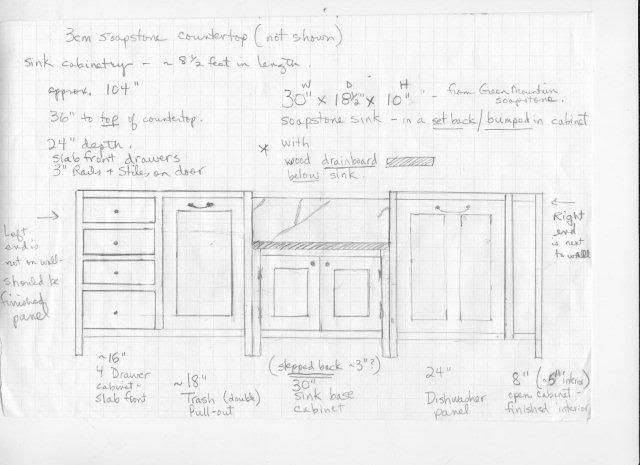 3cm soapstone countertop (not shown)
sink cabinetry - ~ 8 1/2 feet in length.
approx. 104"
36" to top of countertop.
24" depth.
slab front drawers
3" Rails + Stiles on door
W D H
30" x 18 1/2" x 10" - from Green Mountain
soapstone.
soapstone sink - in a set back/bumped in cabinet
* with
wood drainboard
below sink.
Left
end is
not on wall -
should be
finished
panel
Right
end
is next
to wall
~16"
4 Drawer
cabinet -
slab front
~18"
Trash (double)
Pull-out
(stepped back ~3"?)
30"
sink base
cabinet
24"
Dishwasher
panel
8" (~5" interior)
open cabinet -
finished interior